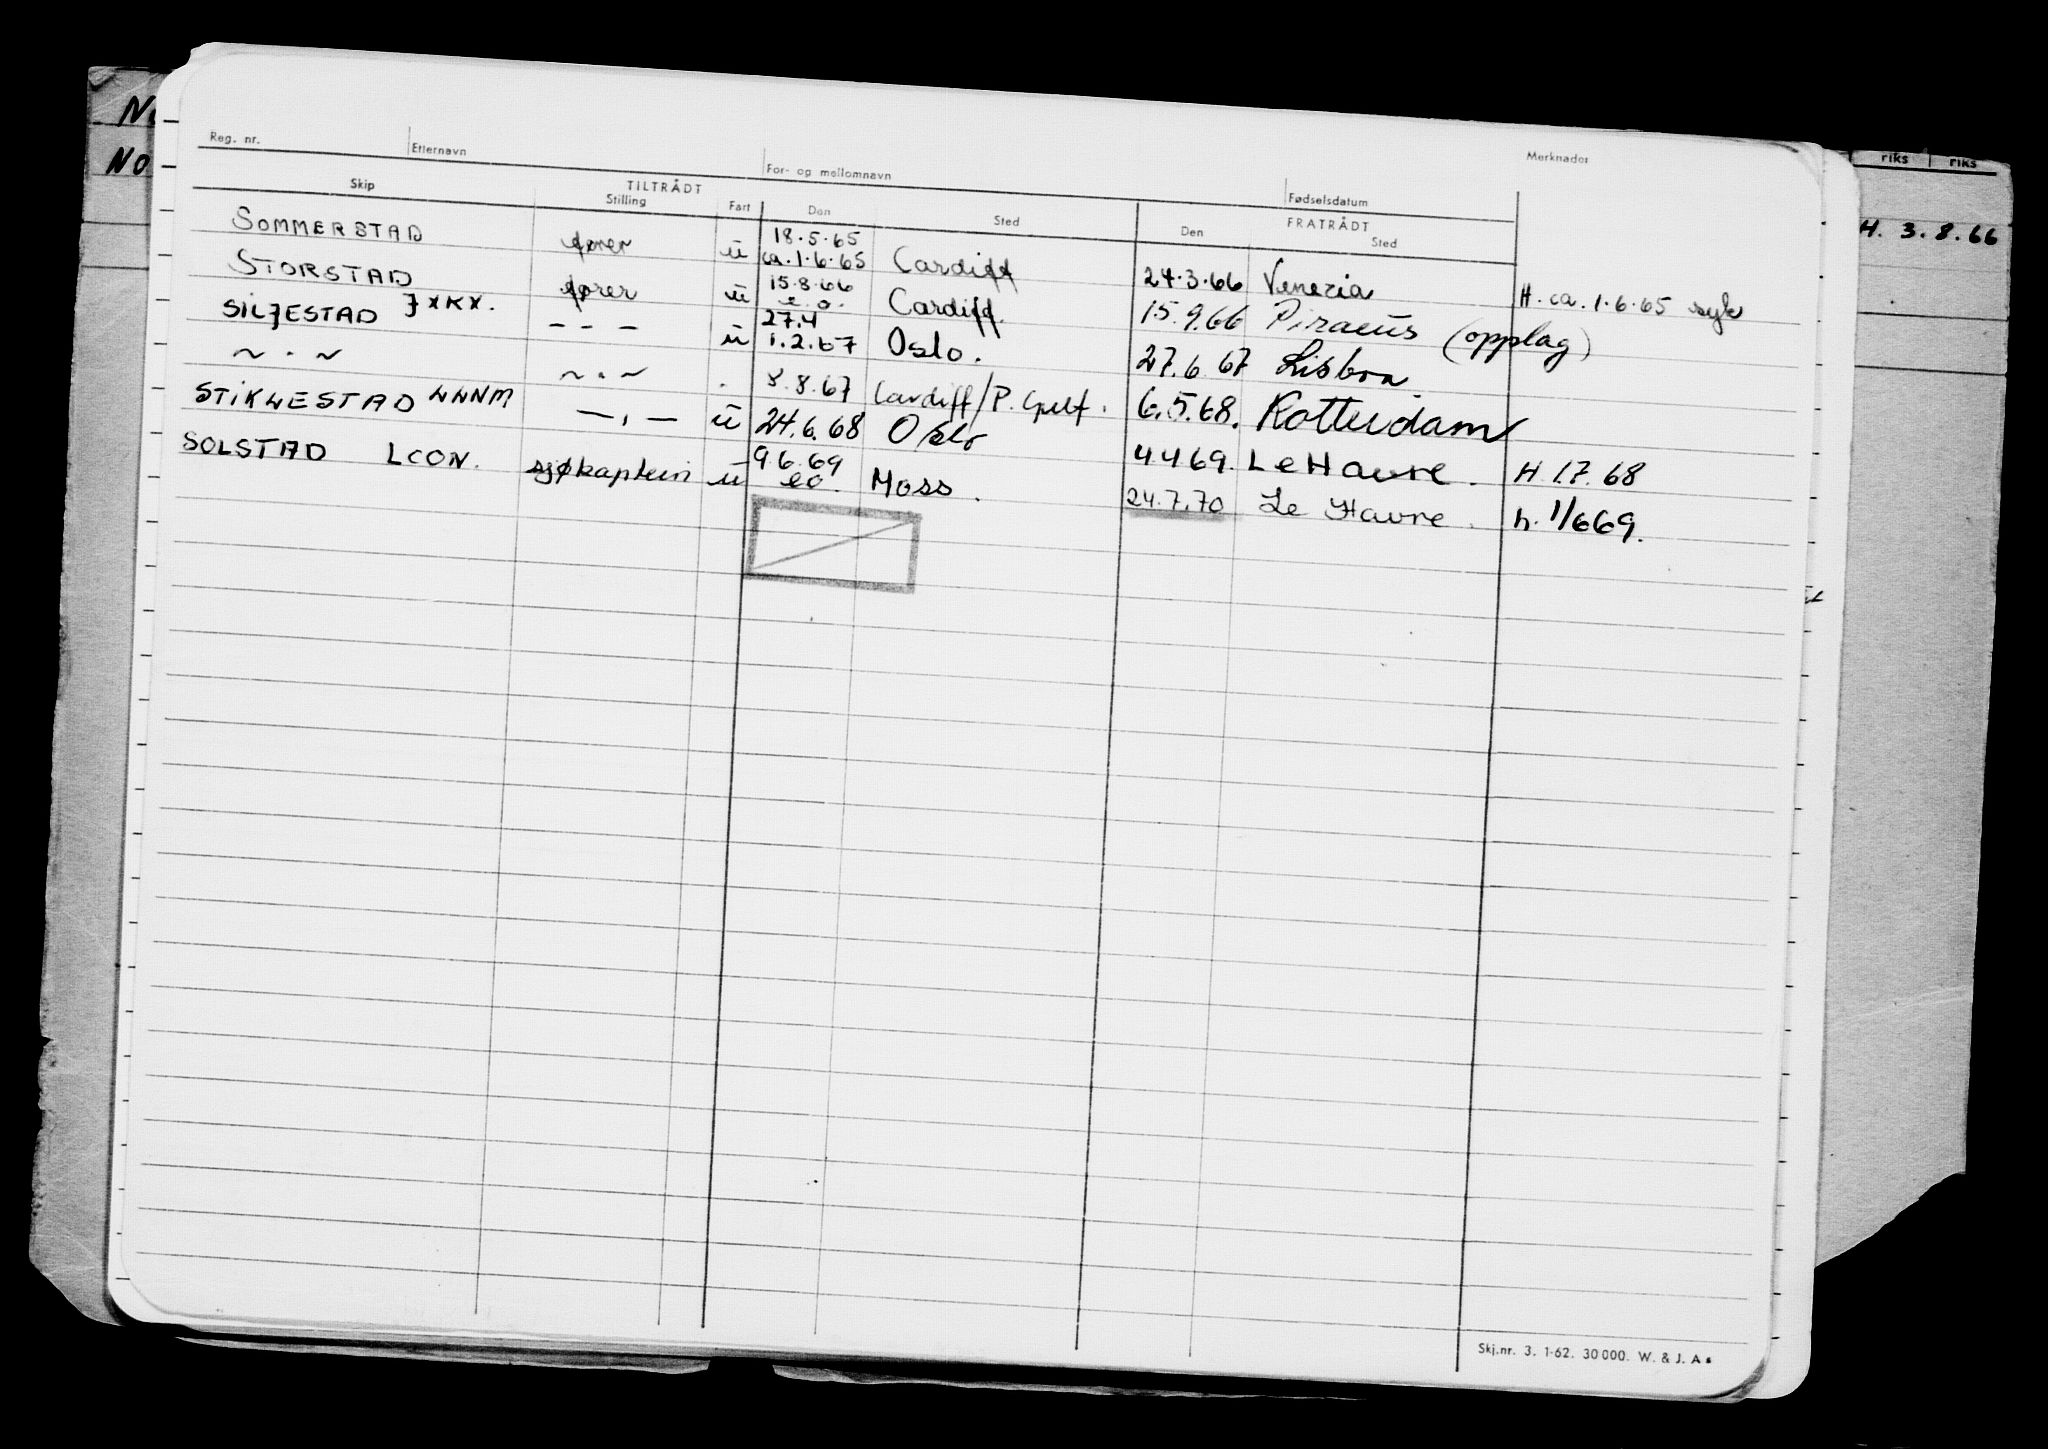 Reg. nr. Etternavn For- og mellomnavn Fødselsdatum Merknader
Skip TILTRÅDT FRATRÅDT
Stilling Fart Den Sted Den Sted
riks riks
SOMMERSTAD fører u 18.5.65 ca. 1.6.65 Cardiff 24.3.66 Venezia H. ca. 1.6.65 syk
STORSTAD fører u 15.8.66 e.o. Cardiff. 15.9.66 Piraeus (opplag)
SILJESTAD JXKX. - - - u 27.4 1.2.67 Oslo. 27.6.67 Lisboa
~ . ~ ~ . ~ . 8.8.67 Cardiff/P. Gulf. 6.5.68. Rotterdam
STIKLESTAD LLNM — , — u 24.6.68 Oslo 4.4 69. Le Havre. H 1.7.68
SOLSTAD LCON. sjøkaptein u 9.6.69 eo. Moss. 24.7.70 Le Havre. h. 1/669.
H. 3.8.66
NO
Skj.nr. 3. 1-62. 30 000. W. & J. A s